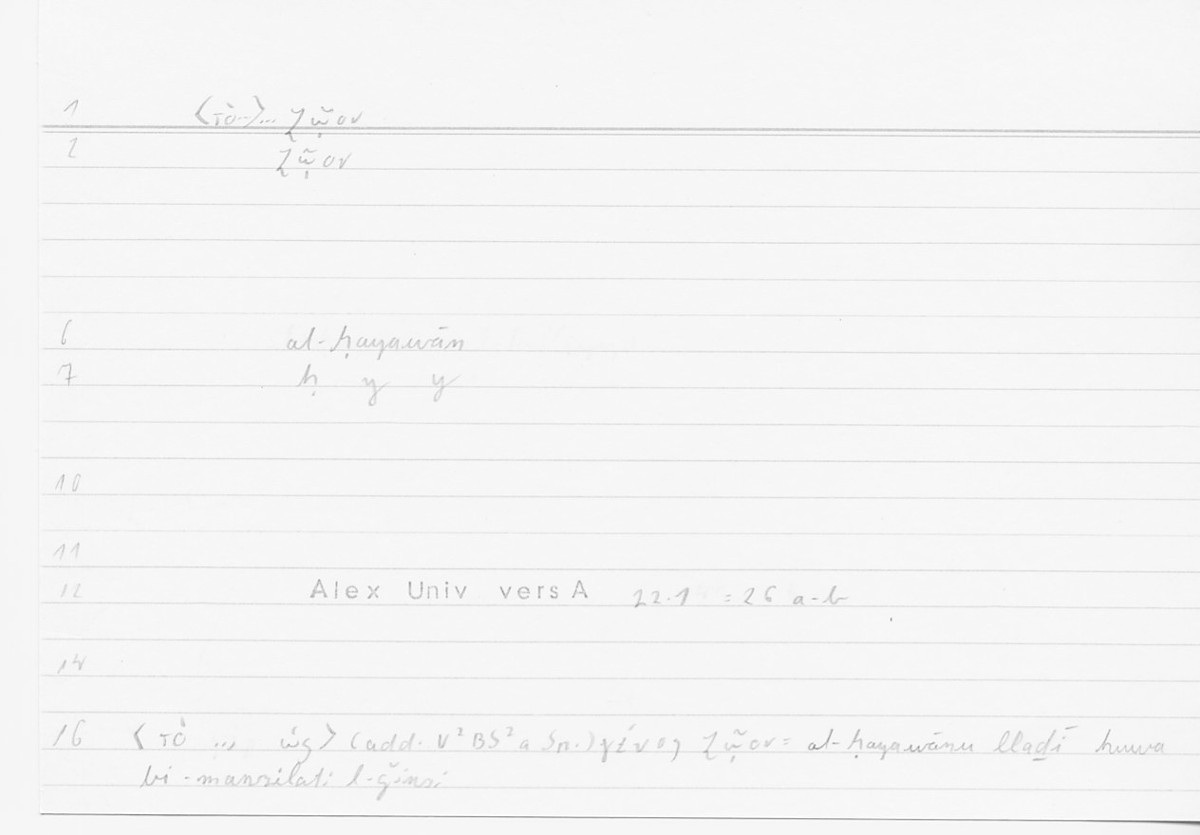 1 〈τὸ〉... ζῷον
2 ζῷον
6 al-ḥayawān
7 ḥ y y
10
11
12 Alex Univ vers A 22.1 = 26 a-b
14
16 〈τὸ ... ὡς〉 (add. V²BS²a Sn.) γένος ζῷον = al-ḥayawānu llaḏī huwa
bi-manzilati l-ǧinsi